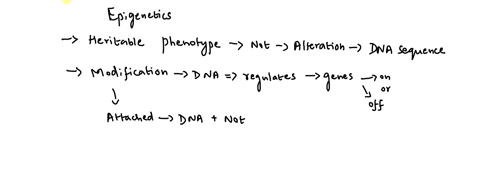 Epigenetics
→ Heritable phenotype → Not → Alteration → DNA sequence
→ Modification → DNA => regulates → genes → on
or
↘ off
↓
Attached → DNA + Not